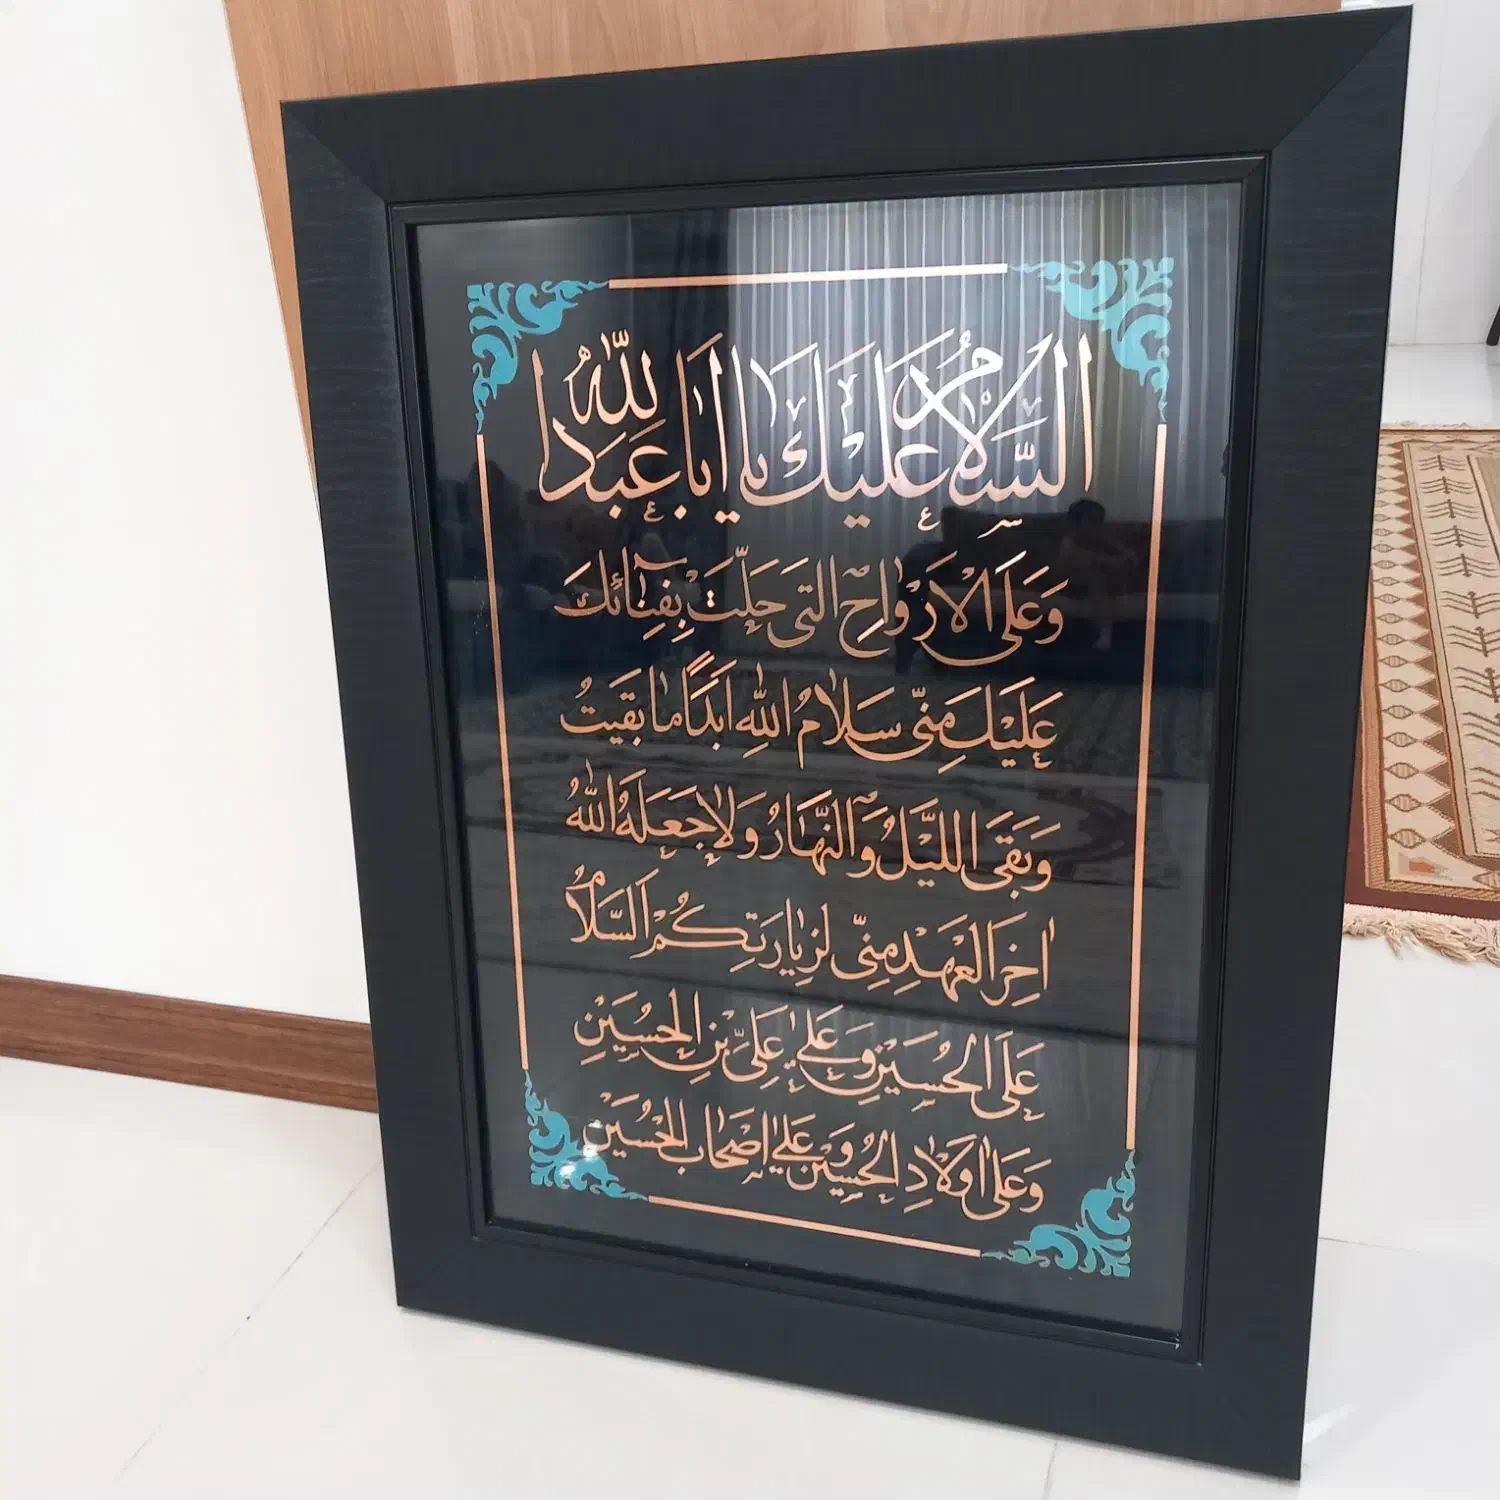 اَلسَّلامُ عَلَيْكَ يا اَبا عَبْدِاللّٰهِ
وَعَلَى الْاَرْواحِ الَّتى حَلَّتْ بِفِنائِكَ
عَلَيْكَ مِنّى سَلامُ اللّٰهِ اَبَدًا ما بَقيتُ
وَبَقِىَ اللَّيْلُ وَالنَّهارُ وَلاجَعَلَهُ اللّٰهُ
اخِرَ الْعَهْدِ مِنّى لِزِيارَتِكُمْ اَلسَّلامُ
عَلَى الْحُسَيْنِ وَعَلى عَلِىِّ بْنِ الْحُسَيْنِ
وَعَلى اَوْلادِ الْحُسَيْنِ وَعَلى اَصْحابِ الْحُسَيْنِ